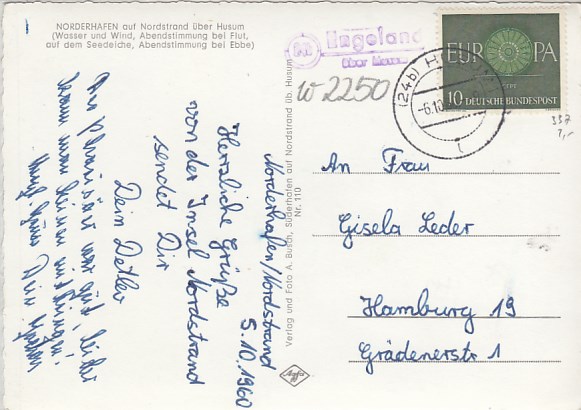 NORDERHAFEN auf Nordstrand über Husum
(Wasser und Wind, Abendstimmung bei Flut,
auf dem Seedeiche, Abendstimmung bei Ebbe)
Engeland
über Husum
W 2250
(24b) HUSUM
-6.10
EUROPA
10 DEUTSCHE BUNDESPOST
337
Norderhafen/Nordstrand
5.10.1960
Herzliche Grüße
von der Insel Nordstrand
sendet Dir
Dein Detlev
war gut, leider
kann man keinen mitbringen.
Verlag und Foto A. Busch, Süderhafen auf Nordstrand üb. Husum
Nr. 110
Agfa
An Frau
Gisela Leder
Hamburg 19
Grädenerstr 1